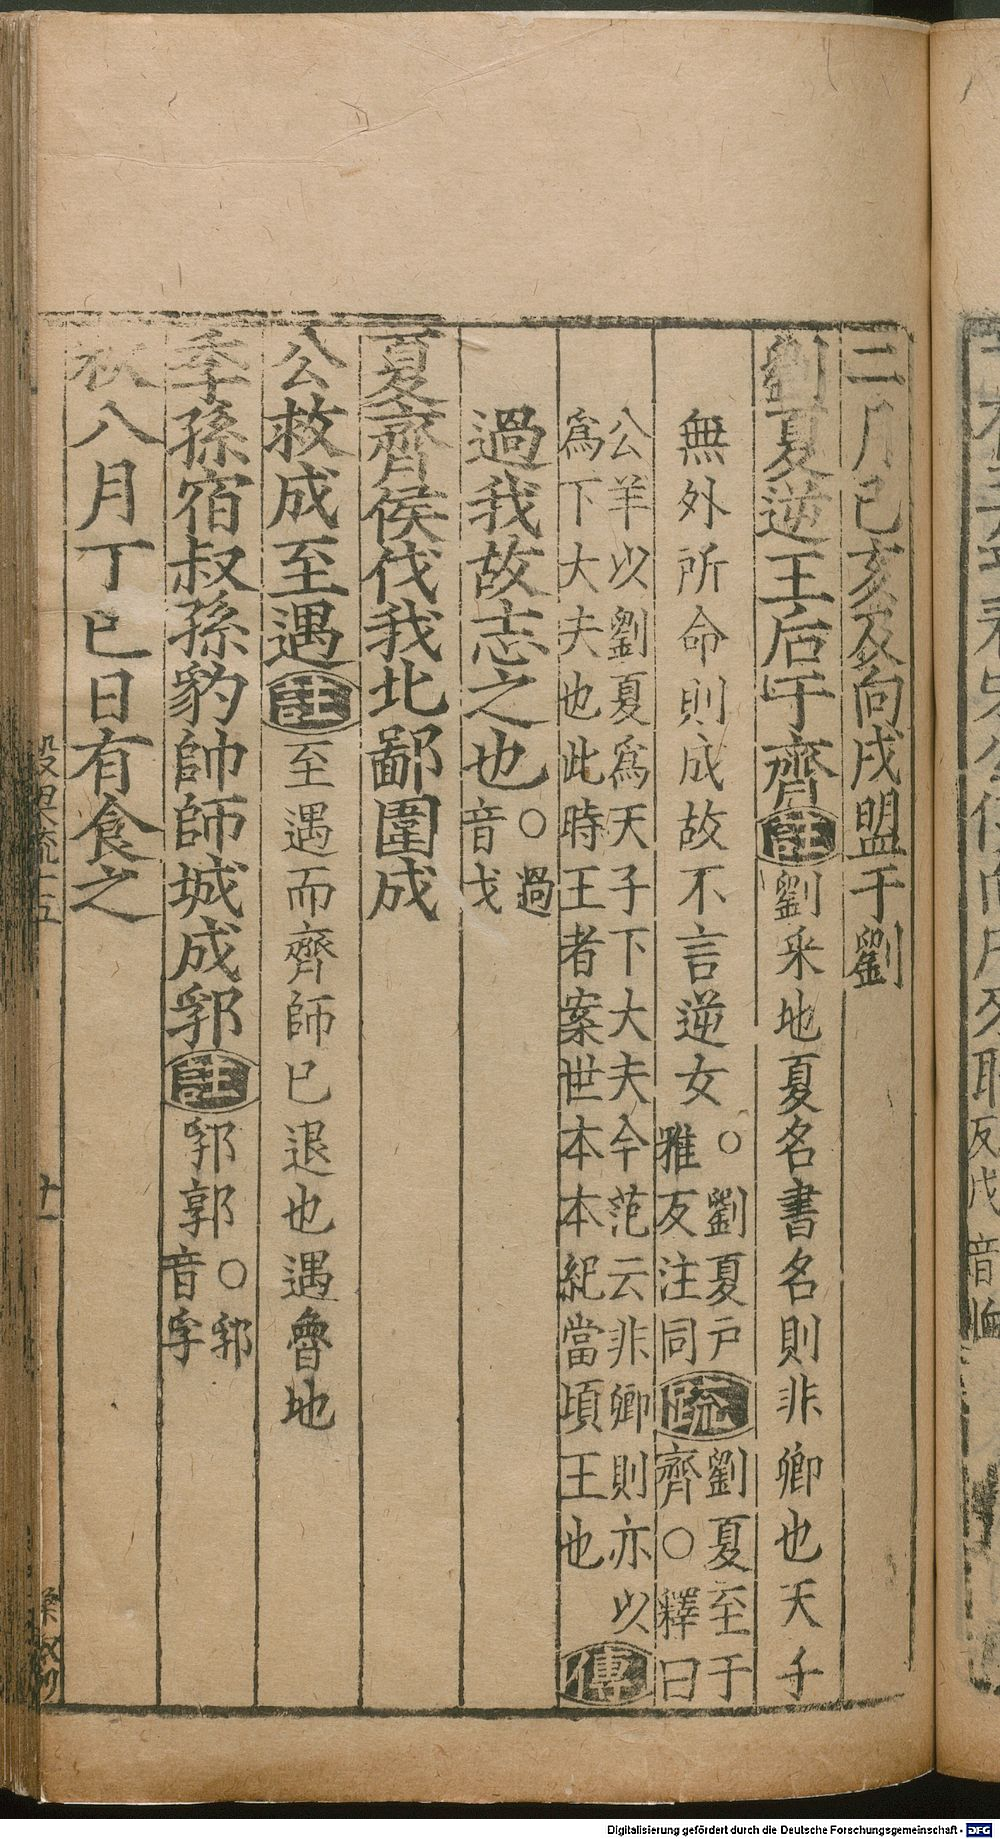 二月己亥及向戌盟于劉
劉夏逆王后于齊註劉采地夏名書名則非卿也天子
無外所命則成故不言逆女○劉夏戶
雅反注同疏劉夏至于
齊○釋曰
公羊以劉夏爲天子下大夫今范云非卿則亦以
爲下大夫也此時王者案世本本紀當頃王也傳
過我故志之也○過
音戈
夏齊侯伐我北鄙圍成
公救成至遇註至遇而齊師已退也遇魯地
季孫宿叔孫豹帥師城成郛註郛郭○郛
音孚
秋八月丁巳日有食之
穀梁疏十五
十一
Digitalisierung gefördert durch die Deutsche Forschungsgemeinschaft - DFG